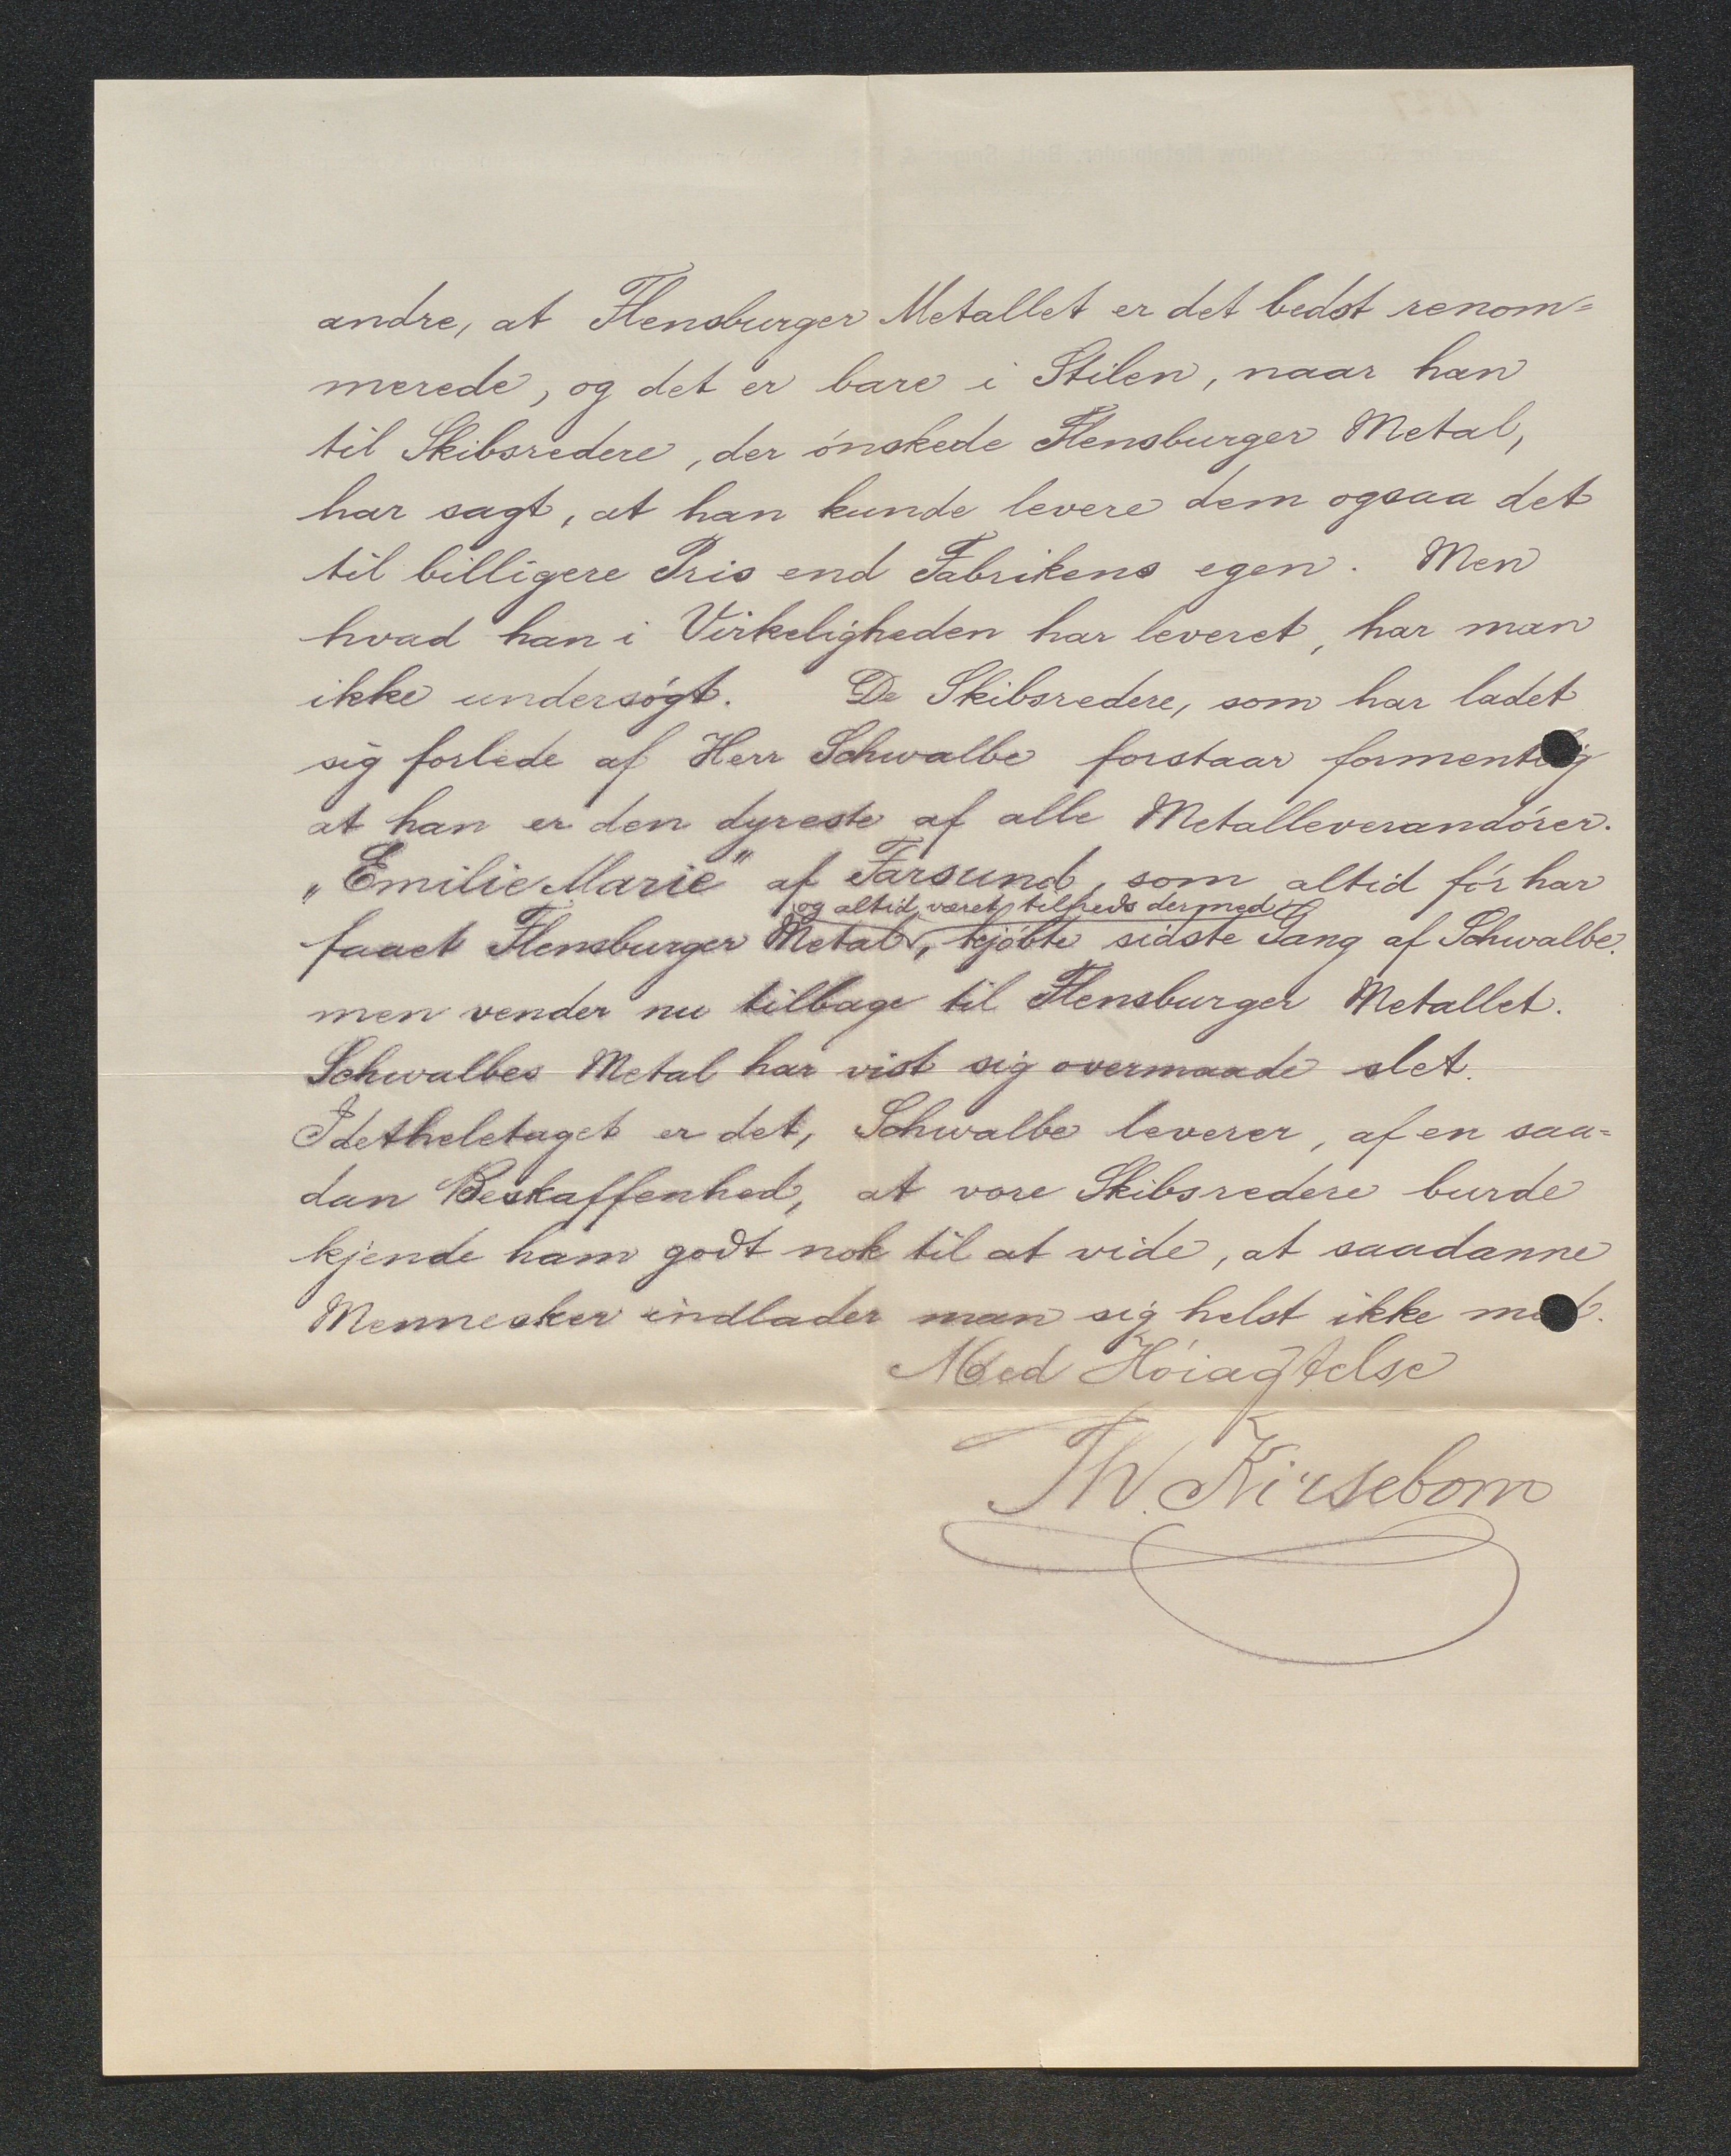 andre, at Flensburger Metallet er det bedst renom=
merede, og det er bare i Stilen, naar han
til Skibsredere, der ónskede Flensburger Metal,
har sagt, at han kunde levere dem ogsaa det
til billigere Pris end Fabrikens egen. Men
hvad han i Virkeligheden har leveret, har man
ikke undersógt. De Skibsredere, som har ladet
sig forlede af Herr Schwalbe forstaar formentlig
at han er den dyreste af alle Metalleverandórer.
„Emilie Marie" af Farsund, som altid fór har
og altid været tilfreds dermed
faaet Flensburger Metal, kjóbte sidste Gang af Schwalbe.
men vender nu tilbage til Flensburger Metallet.
Schwalbes Metal har vist sig overmaade slet.
Idetheletaget er det, Schwalbe leverer, af en saa=
dan Beskaffenhed, at vore Skibsredere burde
kjende ham godt nok til at vide, at saadanne
Mennesker indlader man sig helst ikke med.
Med Hóiagtelse
Th. Kirsebom